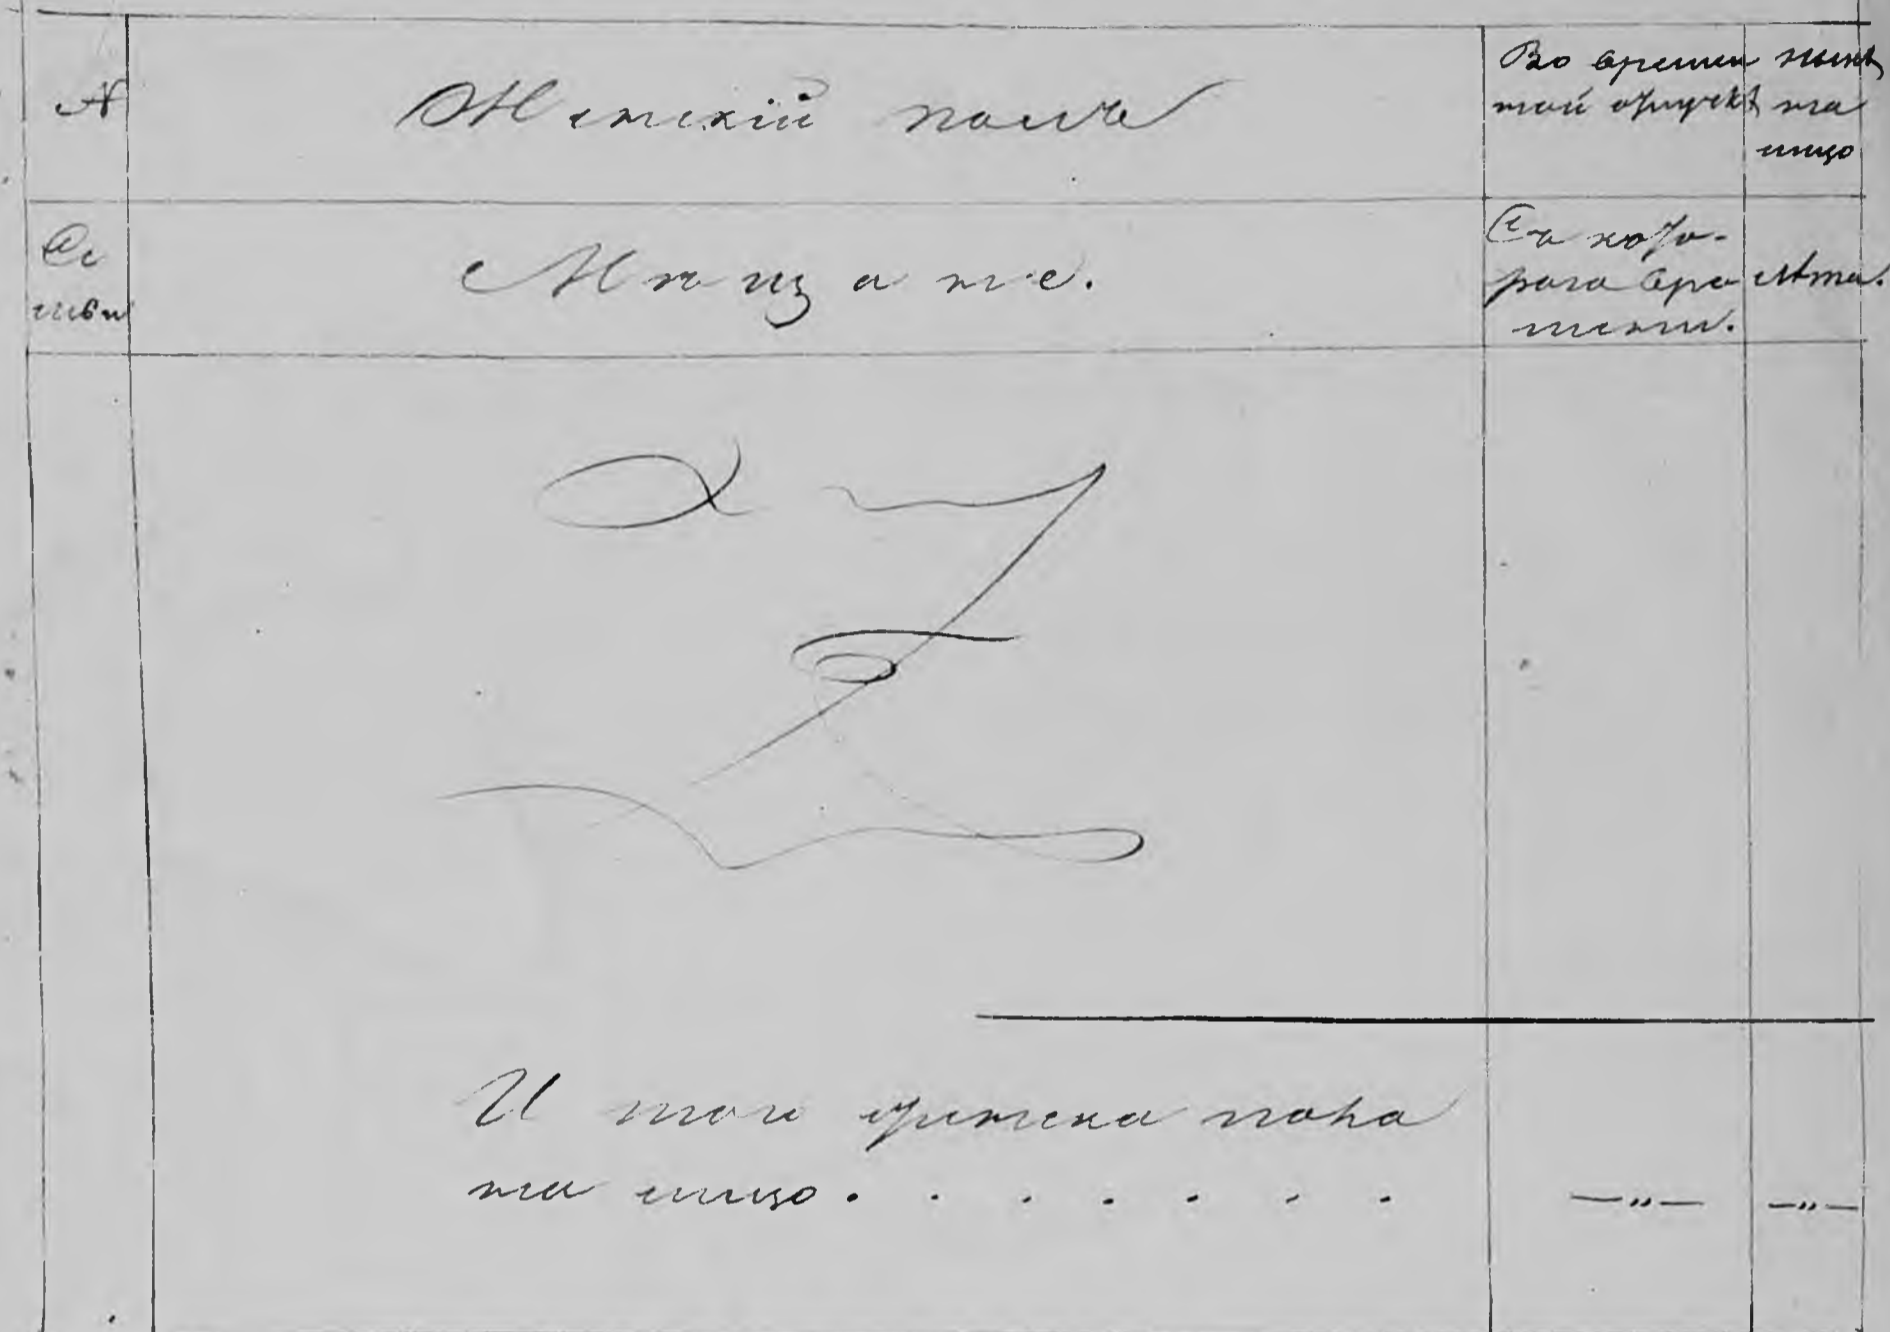 №
Женскій полъ
Во времен
ной отлучкѣ
нынѣ
на
лицо
Се
мьи
Мѣщане.
Съ кото-
раго вре
мени.
Лѣта.
И того женска пола
на лицо . . . . . . .
—„— —„—